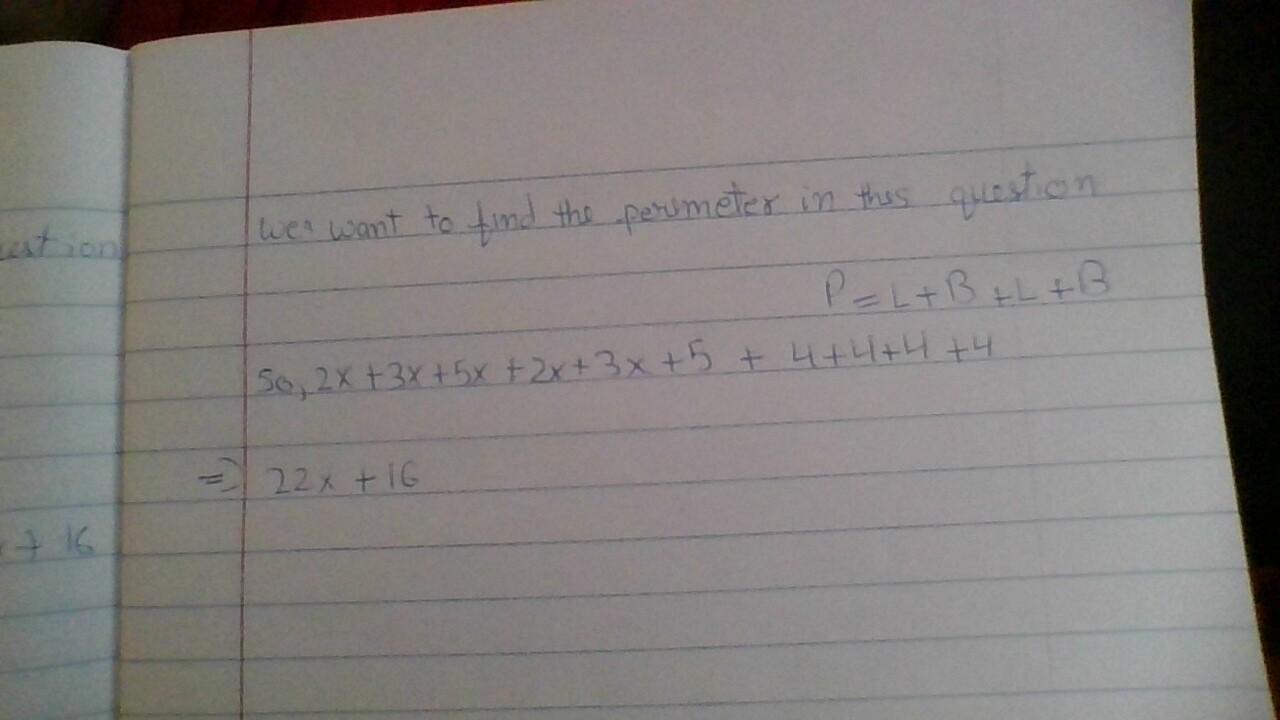 We want to find the perimeter in this question
P = L + B + L + B
So, 2x + 3x + 5x + 2x + 3x + 5 + 4 + 4 + 4 + 4
=> 22x + 16
+ 16